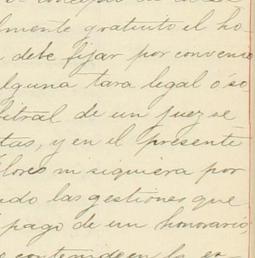 lmente gratuito el ho
debe fijar por convenio
alguna tara legal ó so
bitral de un juez se
tas, y en el presente
lores ni siquiera por
ado las gestiones que
pago de un honorario,